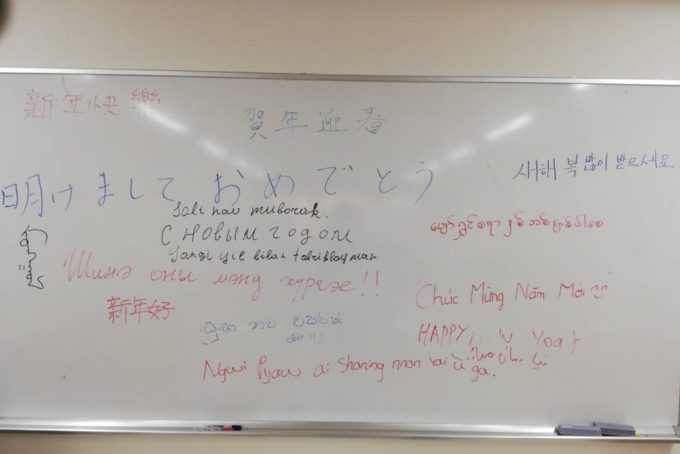 新年快樂
賀年迎春
明けましておめでとう
새해 복 많이 받으세요
Soli nav muborak.
С новым годом
Yangi yil bilan tabriklayman
Шинэ оны мэнд хүргэе!!
新年好
සුභ නව වසරක්
Chúc Mừng Năm Mới
HAPPY
Ngwi Pyaw ai Shaning nnan rai u ga.